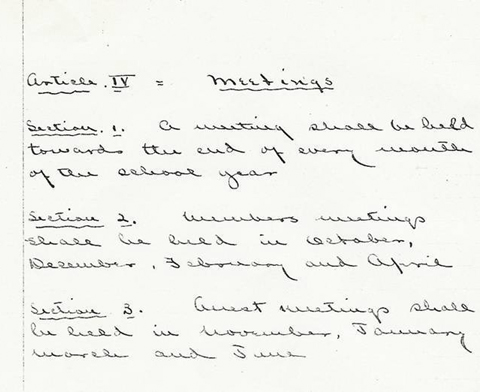 Article. IV = Meetings
Section. 1. A meeting shall be held
towards the end of every month
of the school year
Section 2. Members meetings
shall be held in October,
December, February and April
Section 3. Guest meetings shall
be held in November, January
March and June